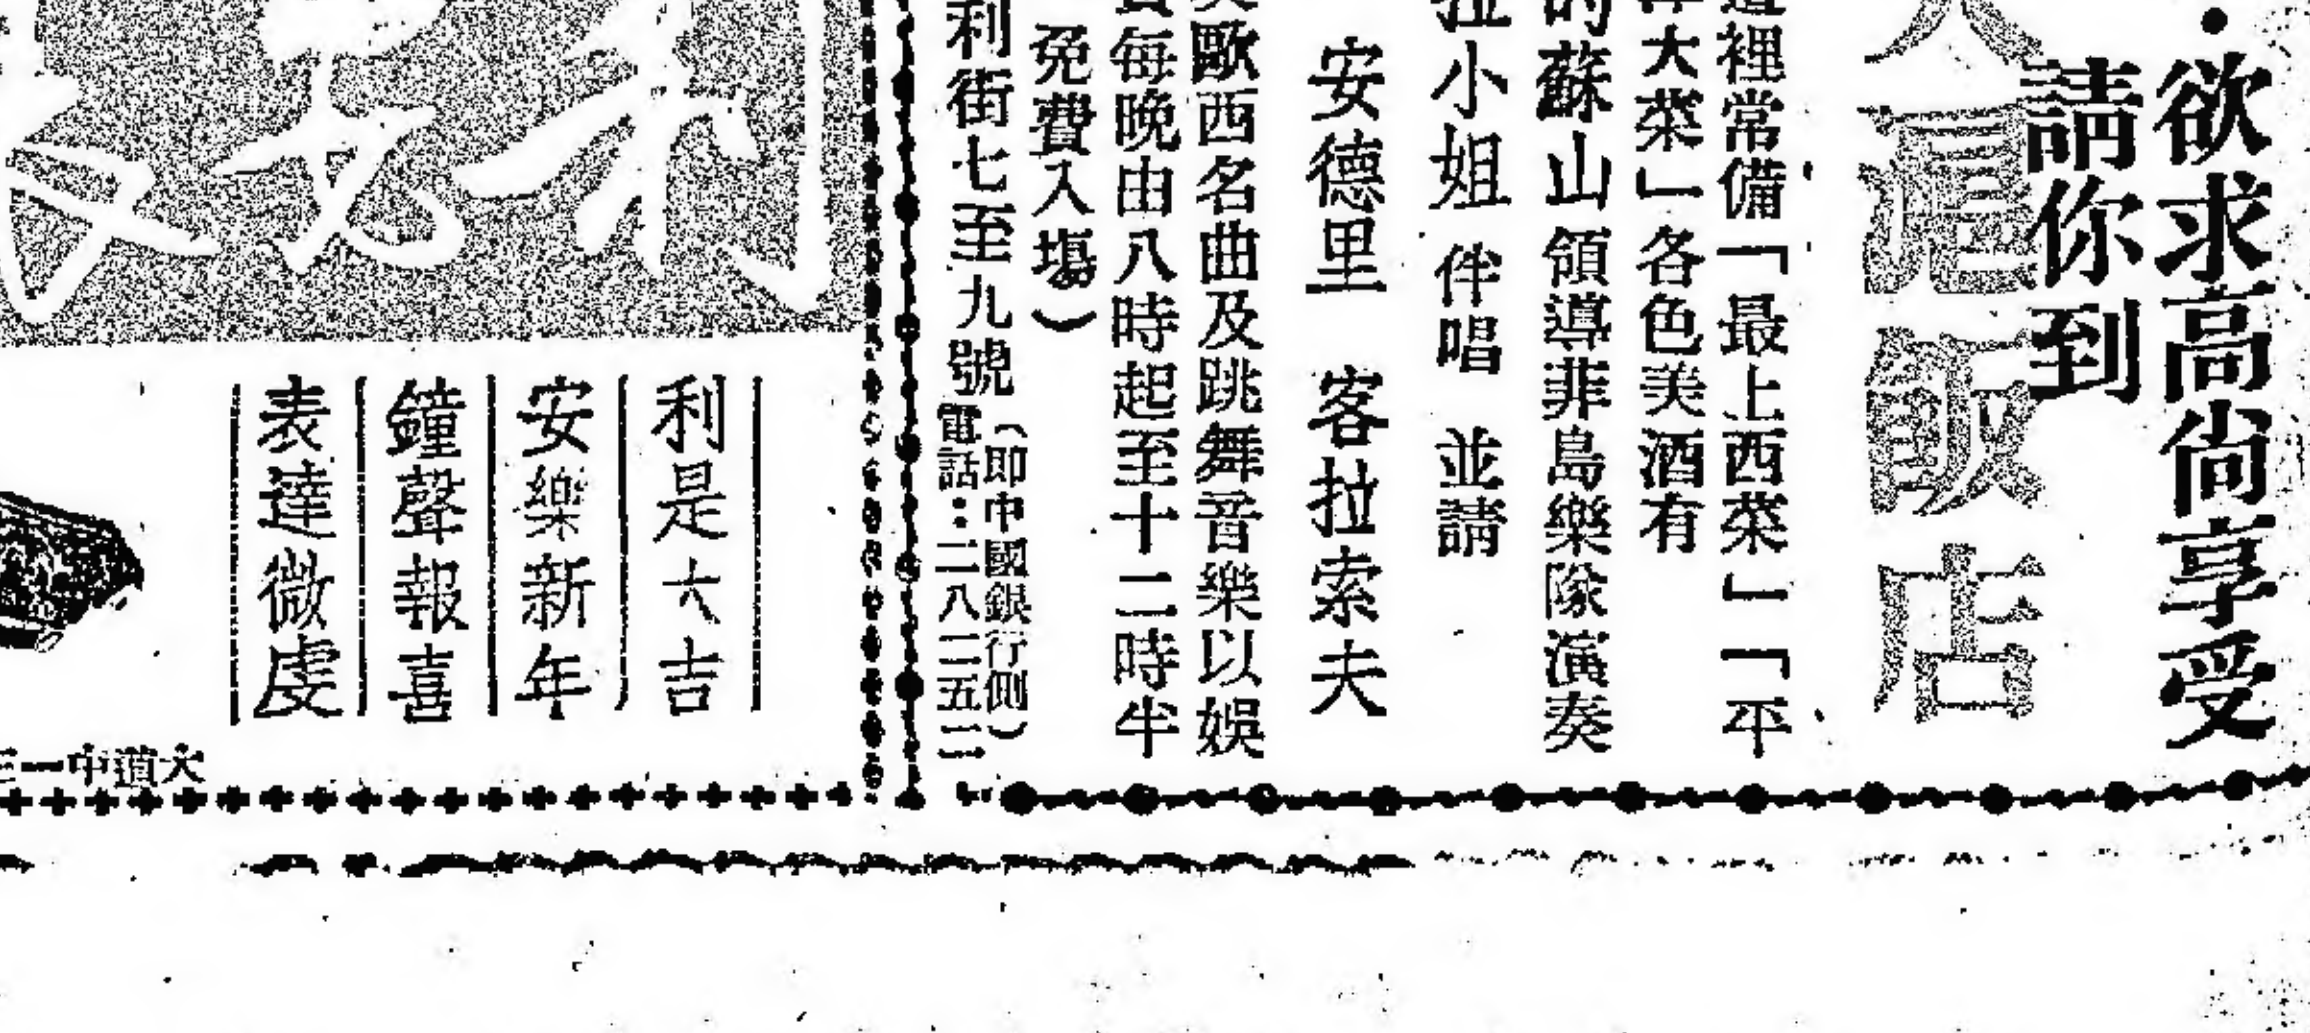 欲求高尚享受
請你到
滬飯店
裡常備「最上西菜」「平
大菜」各色美酒有
的蘇山領導菲島樂隊演奏
拉小姐 伴唱 並請
安德里 客拉索夫
歐西名曲及跳舞音樂以娛
每晚由八時起至十二時半
免費入塲)
利街七至九號
(即中國銀行側)
電話:二八二五三
利是大吉
安樂新年
鐘聲報喜
表達微虔
大道中一三